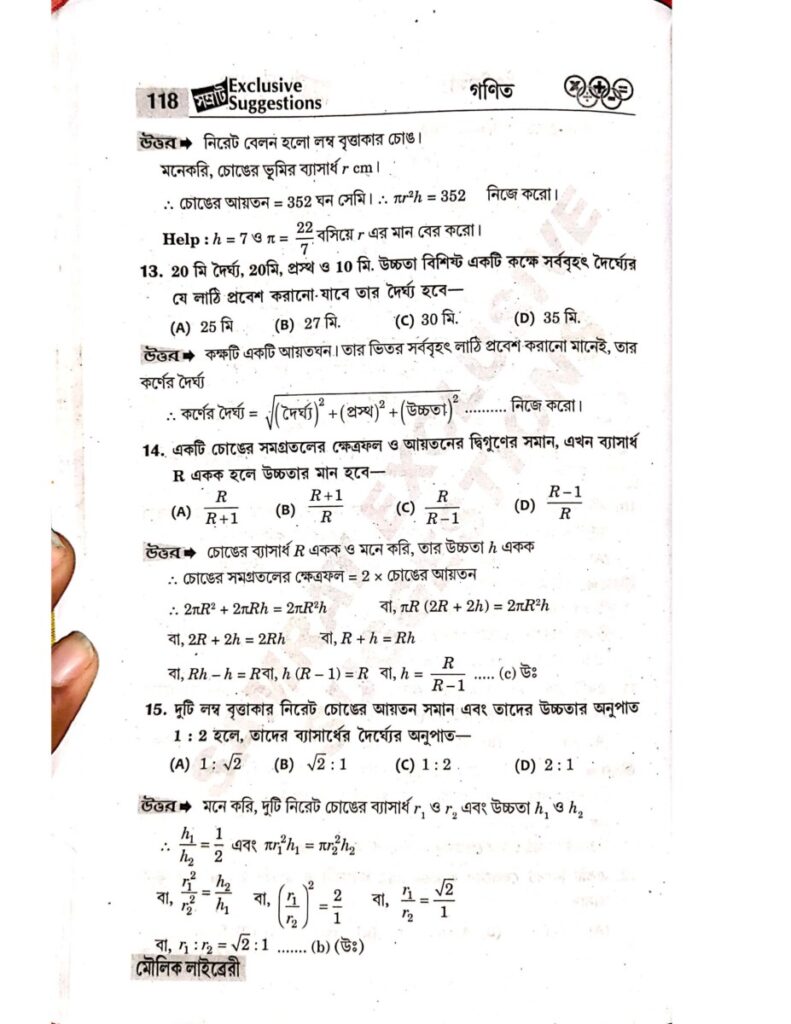 118 সম্রাট Exclusive Suggestions গণিত
উত্তর ➡ নিরেট বেলন হলো লম্ব বৃত্তাকার চোঙ।
মনেকরি, চোঙের ভূমির ব্যাসার্ধ r cm।
∴ চোঙের আয়তন = 352 ঘন সেমি। ∴ πr²h = 352 নিজে করো।
Help : h = 7 ও π = 22/7 বসিয়ে r এর মান বের করো।
13. 20 মি দৈর্ঘ্য, 20মি, প্রস্থ ও 10 মি. উচ্চতা বিশিষ্ট একটি কক্ষে সর্ববৃহৎ দৈর্ঘ্যের
যে লাঠি প্রবেশ করানো যাবে তার দৈর্ঘ্য হবে—
(A) 25 মি (B) 27 মি. (C) 30 মি. (D) 35 মি.
উত্তর ➡ কক্ষটি একটি আয়তঘন। তার ভিতর সর্ববৃহৎ লাঠি প্রবেশ করানো মানেই, তার
কর্ণের দৈর্ঘ্য
∴ কর্ণের দৈর্ঘ্য = √((দৈর্ঘ্য)² + (প্রস্থ)² + (উচ্চতা)²) .......... নিজে করো।
14. একটি চোঙের সমগ্রতলের ক্ষেত্রফল ও আয়তনের দ্বিগুণের সমান, এখন ব্যাসার্ধ
R একক হলে উচ্চতার মান হবে—
(A) R/(R+1) (B) (R+1)/R (C) R/(R−1) (D) (R−1)/R
উত্তর ➡ চোঙের ব্যাসার্ধ R একক ও মনে করি, তার উচ্চতা h একক
∴ চোঙের সমগ্রতলের ক্ষেত্রফল = 2 × চোঙের আয়তন
∴ 2πR² + 2πRh = 2πR²h বা, πR (2R + 2h) = 2πR²h
বা, 2R + 2h = 2Rh বা, R + h = Rh
বা, Rh – h = Rবা, h (R – 1) = R বা, h = R/(R−1) ..... (c) উঃ
15. দুটি লম্ব বৃত্তাকার নিরেট চোঙের আয়তন সমান এবং তাদের উচ্চতার অনুপাত
1 : 2 হলে, তাদের ব্যাসার্ধের দৈর্ঘ্যের অনুপাত—
(A) 1 : √2 (B) √2 : 1 (C) 1 : 2 (D) 2 : 1
উত্তর ➡ মনে করি, দুটি নিরেট চোঙের ব্যাসার্ধ r₁ ও r₂ এবং উচ্চতা h₁ ও h₂
∴ h₁/h₂ = 1/2 এবং πr₁²h₁ = πr₂²h₂
বা, r₁²/r₂² = h₂/h₁ বা, (r₁/r₂)² = 2/1 বা, r₁/r₂ = √2/1
বা, r₁ : r₂ = √2 : 1 ....... (b) (উঃ)
মৌলিক লাইব্রেরী
SAMRAT EXCLUSIVE
SUGGESTIONS